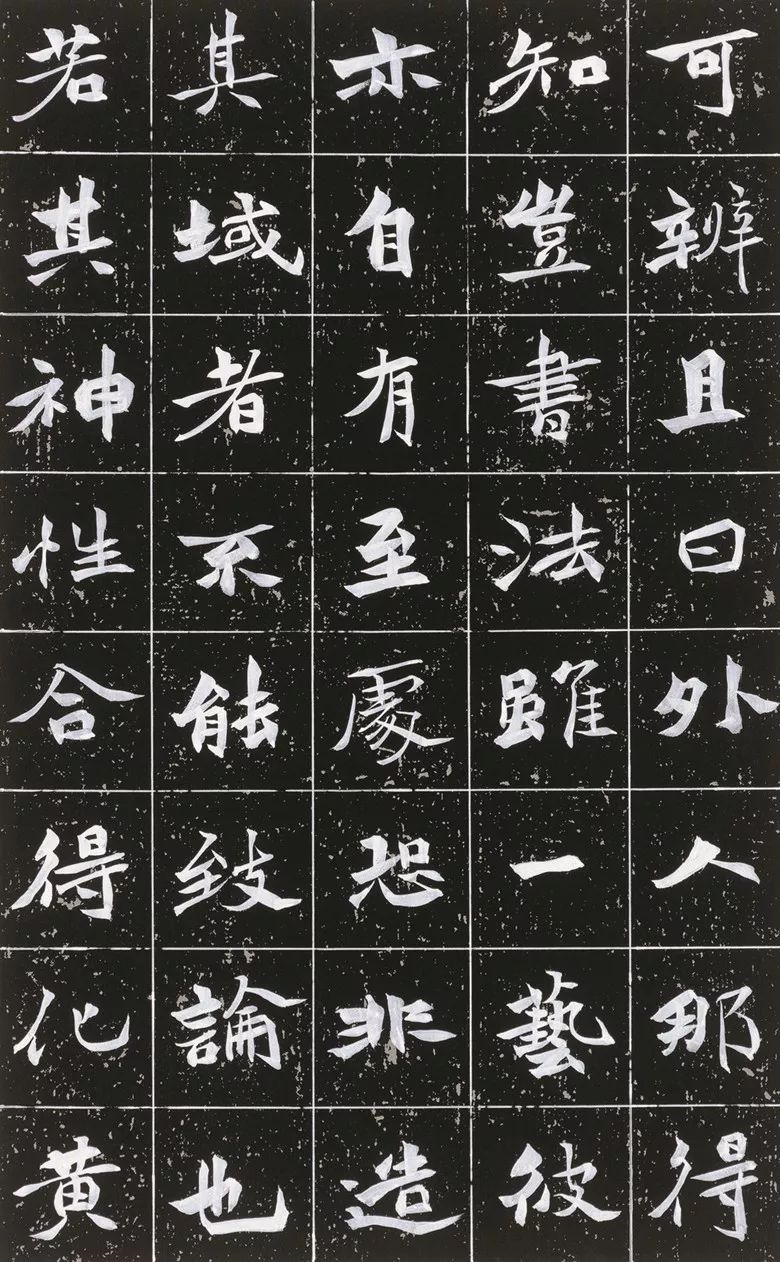 可辨且曰外人那得
知豈書法雖一藝彼
亦自有至處恐非造
其域者不能致論也
若其神性合得化黃